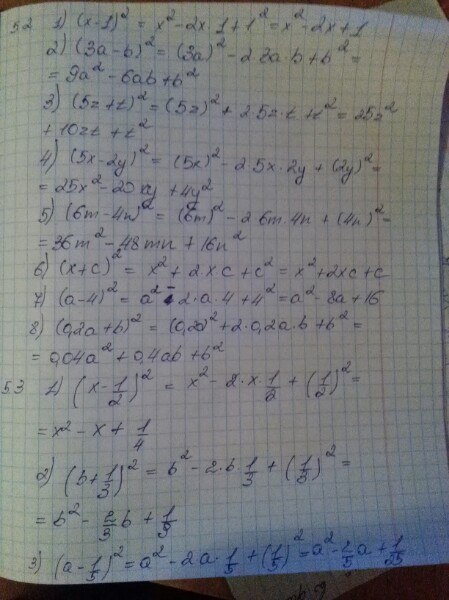 52 1) (x-1)² = x² - 2x·1 + 1² = x² - 2x + 1
2) (3a-b)² = (3a)² - 2·3a·b + b² =
= 9a² - 6ab + b²
3) (5z+t)² = (5z)² + 2·5z·t + t² = 25z²
+ 10zt + t²
4) (5x-2y)² = (5x)² - 2·5x·2y + (2y)² =
= 25x² - 20xy + 4y²
5) (6m-4n)² = (6m)² - 2·6m·4n + (4n)² =
= 36m² - 48mn + 16n²
6) (x+c)² = x² + 2xc + c² = x² + 2xc + c
7) (a-4)² = a² - 2·a·4 + 4² = a² - 8a + 16
8) (0,2a+b)² = (0,2a)² + 2·0,2a·b + b² =
= 0,04a² + 0,4ab + b²
53 1) (x - 1/2)² = x² - 2·x·1/2 + (1/2)² =
= x² - x + 1/4
2) (b + 1/3)² = b² - 2·b 1/3 + (1/3)² =
= b² - 2/3 b + 1/9
3) (a - 1/5)² = a² - 2a·1/5 + (1/5)² = a² - 2/5 a + 1/25